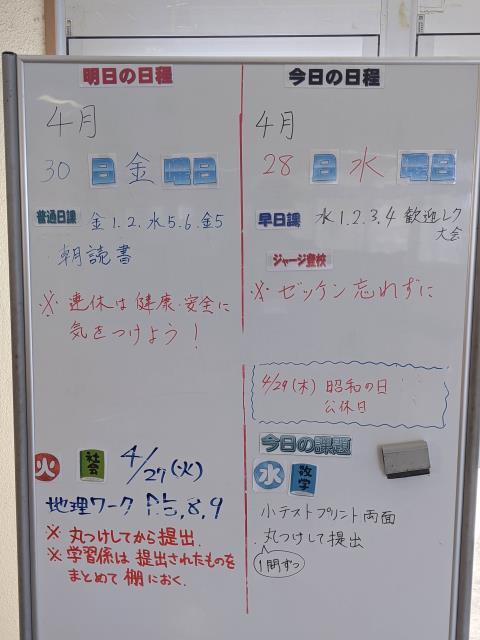 明日の日程
4月
30 日 金 曜日
普通日課 金1.2.水5.6.金5
朝読書
※ 連休は健康・安全に
気をつけよう!
火 社会 4/27(火)
地理ワーク P.5,8,9
※ 丸つけしてから提出.
※ 学習係は提出されたものを
まとめて棚におく.
今日の日程
4月
28 日 水 曜日
早日課 水1.2.3.4 歓迎レク
大会
ジャージ登校
※ ゼッケン忘れずに
4/29(木) 昭和の日
公休日
今日の課題
水 数学
小テストプリント両面
丸つけして提出
1問ずつ